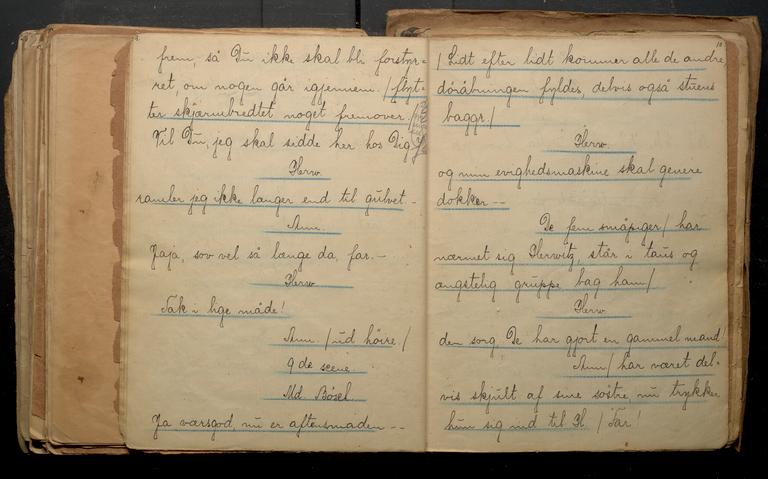 frem, så Du ikke skal bli forstyr=
ret, om nogen går igjennem. / flyt=
ter skjærmbrædtet noget fremover. /
Vil Du, jeg skal sidde her hos Dig
Herw.
ramler jeg ikke længer end til gulvet –
Ann.
Jaja, sov vel så længe da, far. –
Herw.
Tak i lige måde!
Ann. / ud höire. /
9de scene.
Md. Bösel.
Ja værsgod, nu er aftensmaden – –
10
/ Lidt efter lidt kommer alle de andre
döråbningen fyldes, delvis også stuens
baggr. /
Herw.
og min evighedsmaskine skal genere
dokker – –
De fem småpiger / har
nærmet sig Herwitz, står i taus og
ængstelig gruppe bag ham /
Herw.
den sorg, De har gjort en gammel mand
Ann / har været del-
vis skjult af sine söstre, nu trykker
hun sig ind til H. / Far!